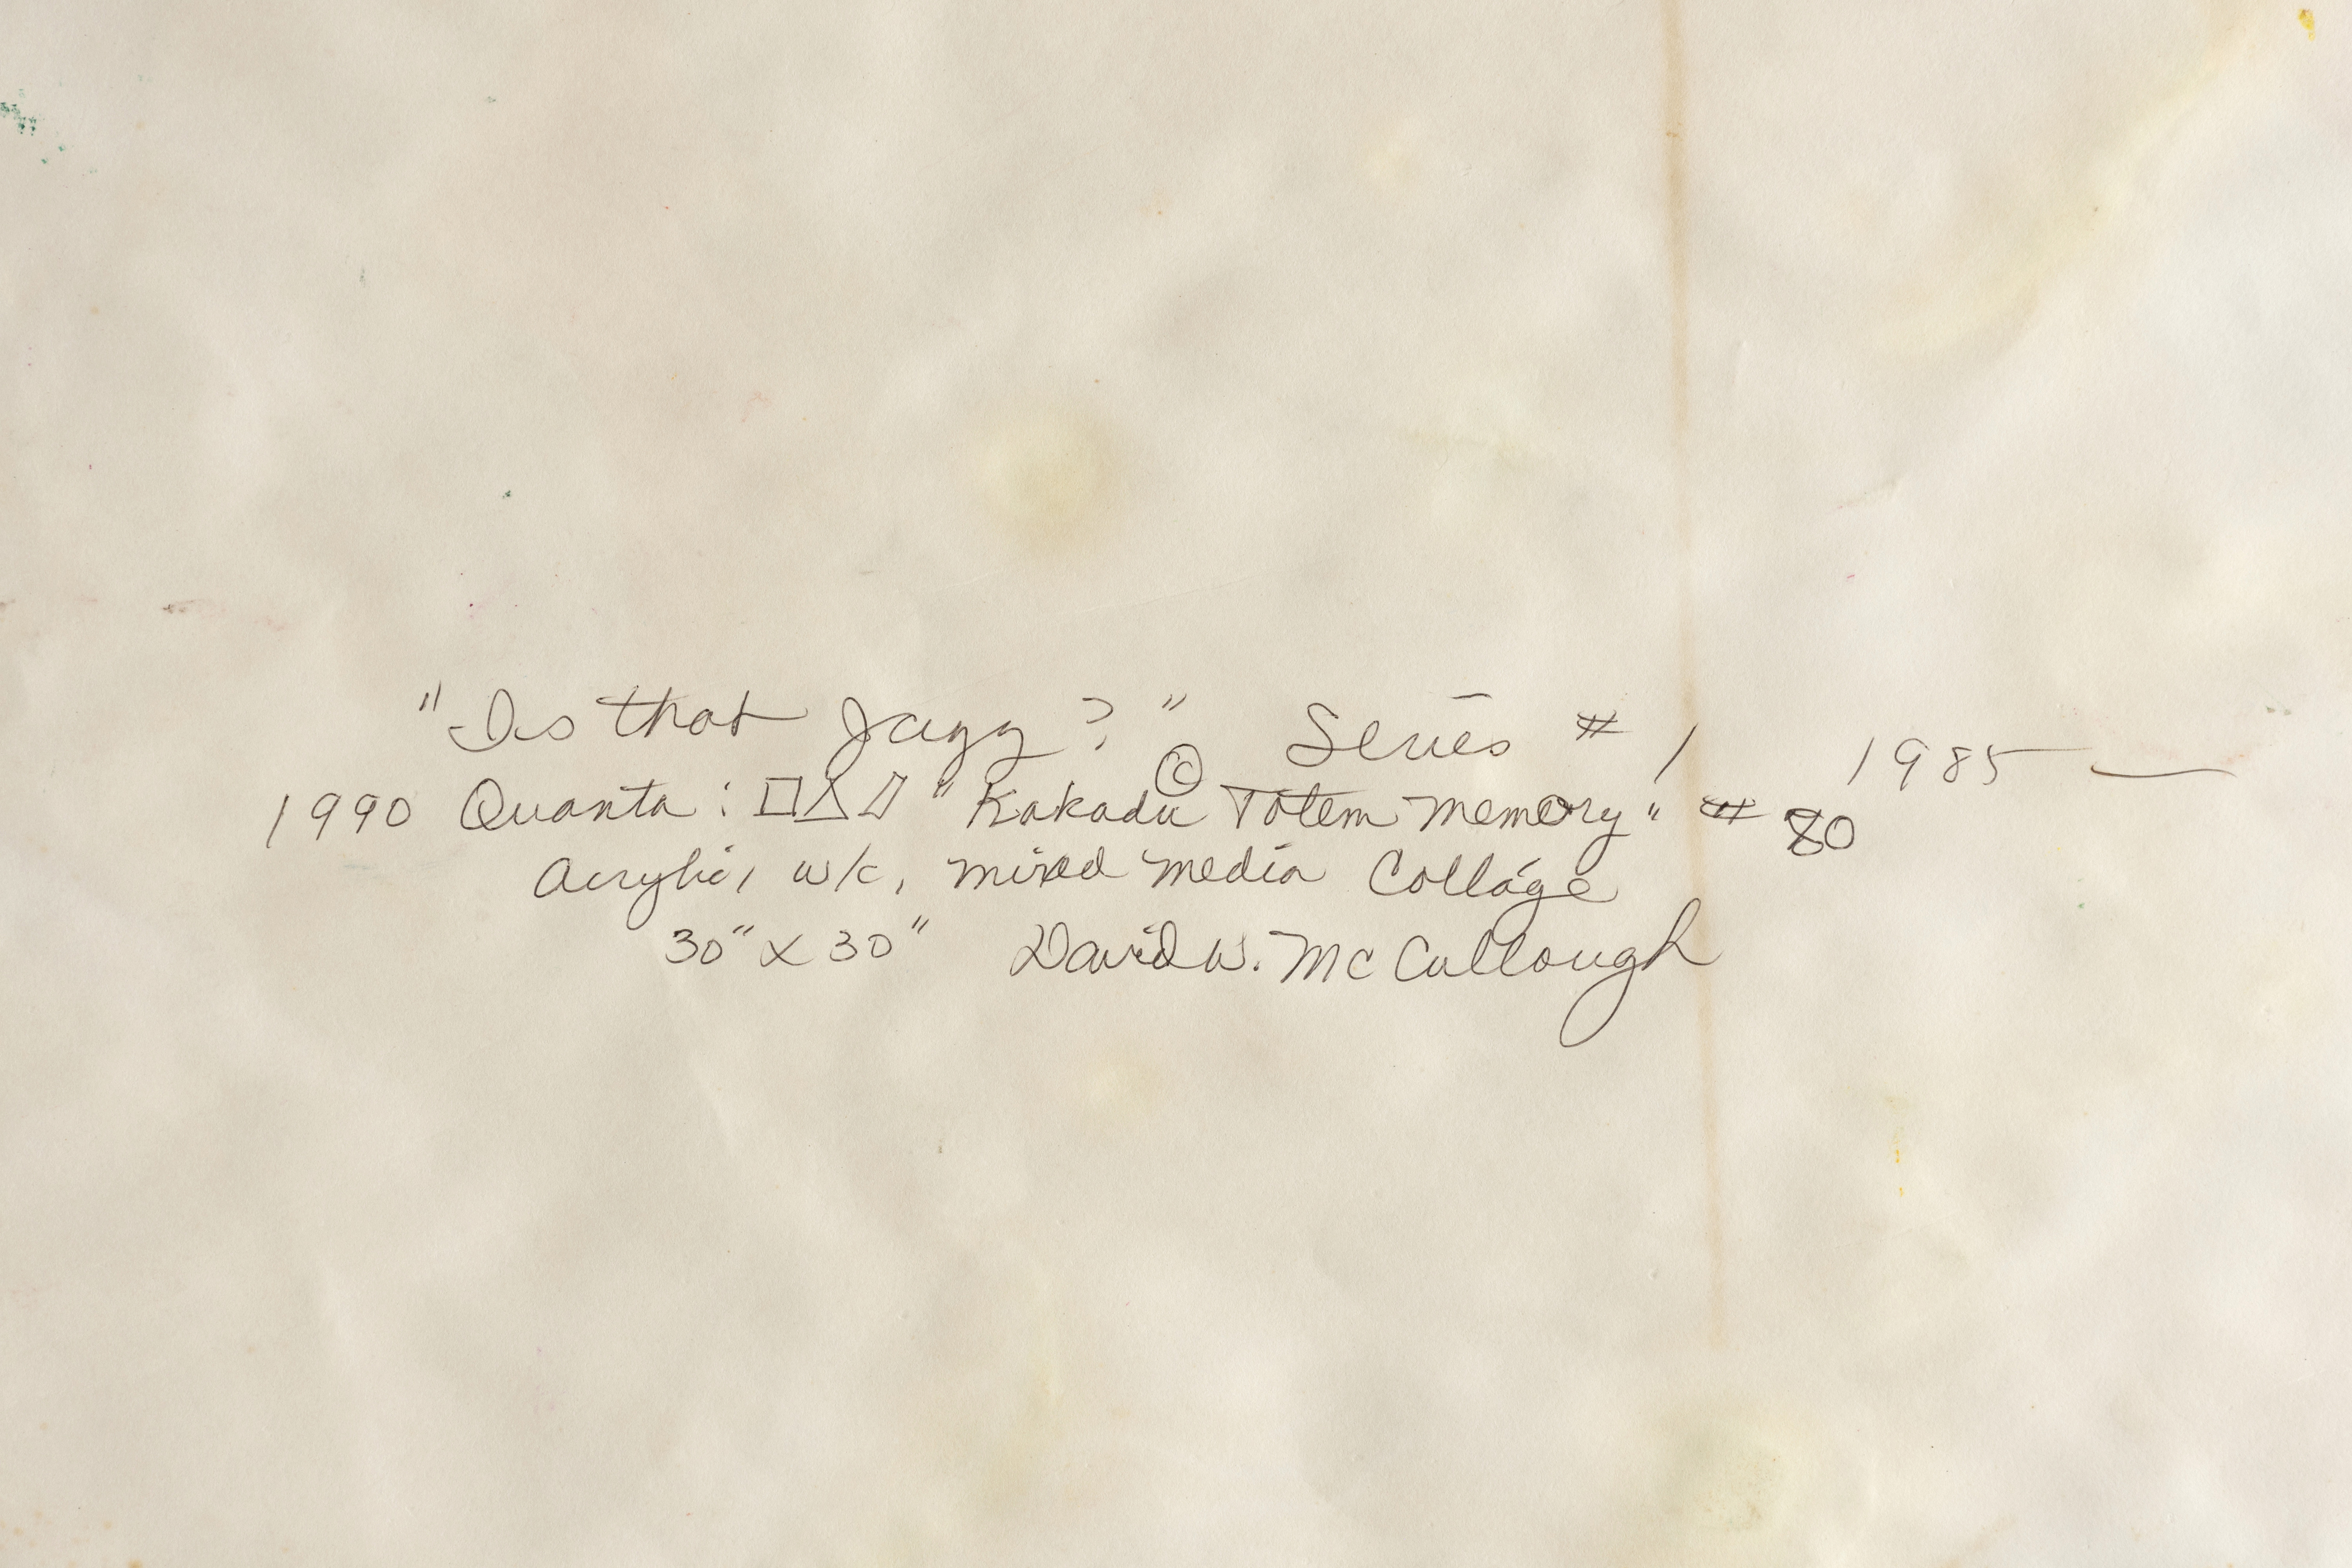 "Is that Jazz?" Series # 1 1985 —
1990 Quanta: □△▱ © "Kakadu Totem Memory" # 80
Acrylic, w/c, mixed media Collage
30" x 30" David W. McCullough